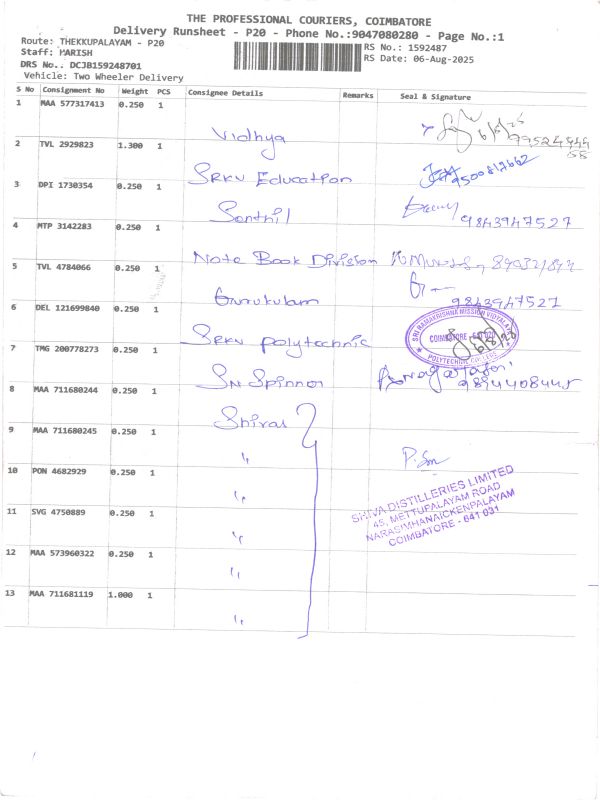 THE PROFESSIONAL COURIERS, COIMBATORE
Delivery Runsheet - P20 - Phone No.:9047080280 - Page No.:1
Route: THEKKUPALAYAM - P20
RS No.: 1592487
Staff: HARISH
RS Date: 06-Aug-2025
DRS No.. DCJB159248701
Vehicle: Two Wheeler Delivery
S No Consignment No Weight PCS Consignee Details Remarks Seal & Signature
1 MAA 577317413 0.250 1 Vidhya 6/8/25 99524444
2 TVL 2929823 1.300 1 SRKV Education 9500817662
3 DPI 1730354 0.250 1 Senthil 9843947527
4 MTP 3142283 0.250 1 Note Book Division
5 TVL 4784066 0.250 1 Gurukulam 9843947527
6 DEL 121699840 0.250 1 SRKV polytechnic
SRI RAMAKRISHNA MISSION VIDYALAYA
COIMBATORE - 641 020
POLYTECHNIC COLLEGE
7 TMG 200778273 0.250 1 SN Spinner 9894408445
8 MAA 711680244 0.250 1 Shivas
9 MAA 711680245 0.250 1 "
10 PON 4682929 0.250 1 "
11 SVG 4750889 0.250 1 "
12 MAA 573960322 0.250 1 "
13 MAA 711681119 1.000 1 "
SHIVA DISTILLERIES LIMITED
45, METTUPALAYAM ROAD
NARASIMHANAICKENPALAYAM
COIMBATORE - 641 031